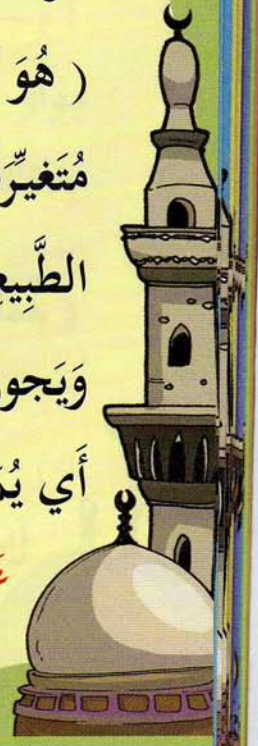 ( هُوَ
مُتَغيِّرَ
الطَّبِيعِ
وَيَجور
أَي يُمَ